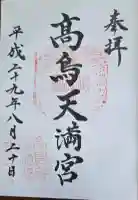 奉拝
高鳥天満宮
平成二十九年八月二十日